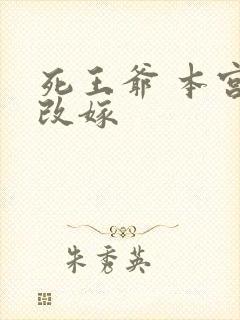 死王爷 本宫
改嫁
朱秀英